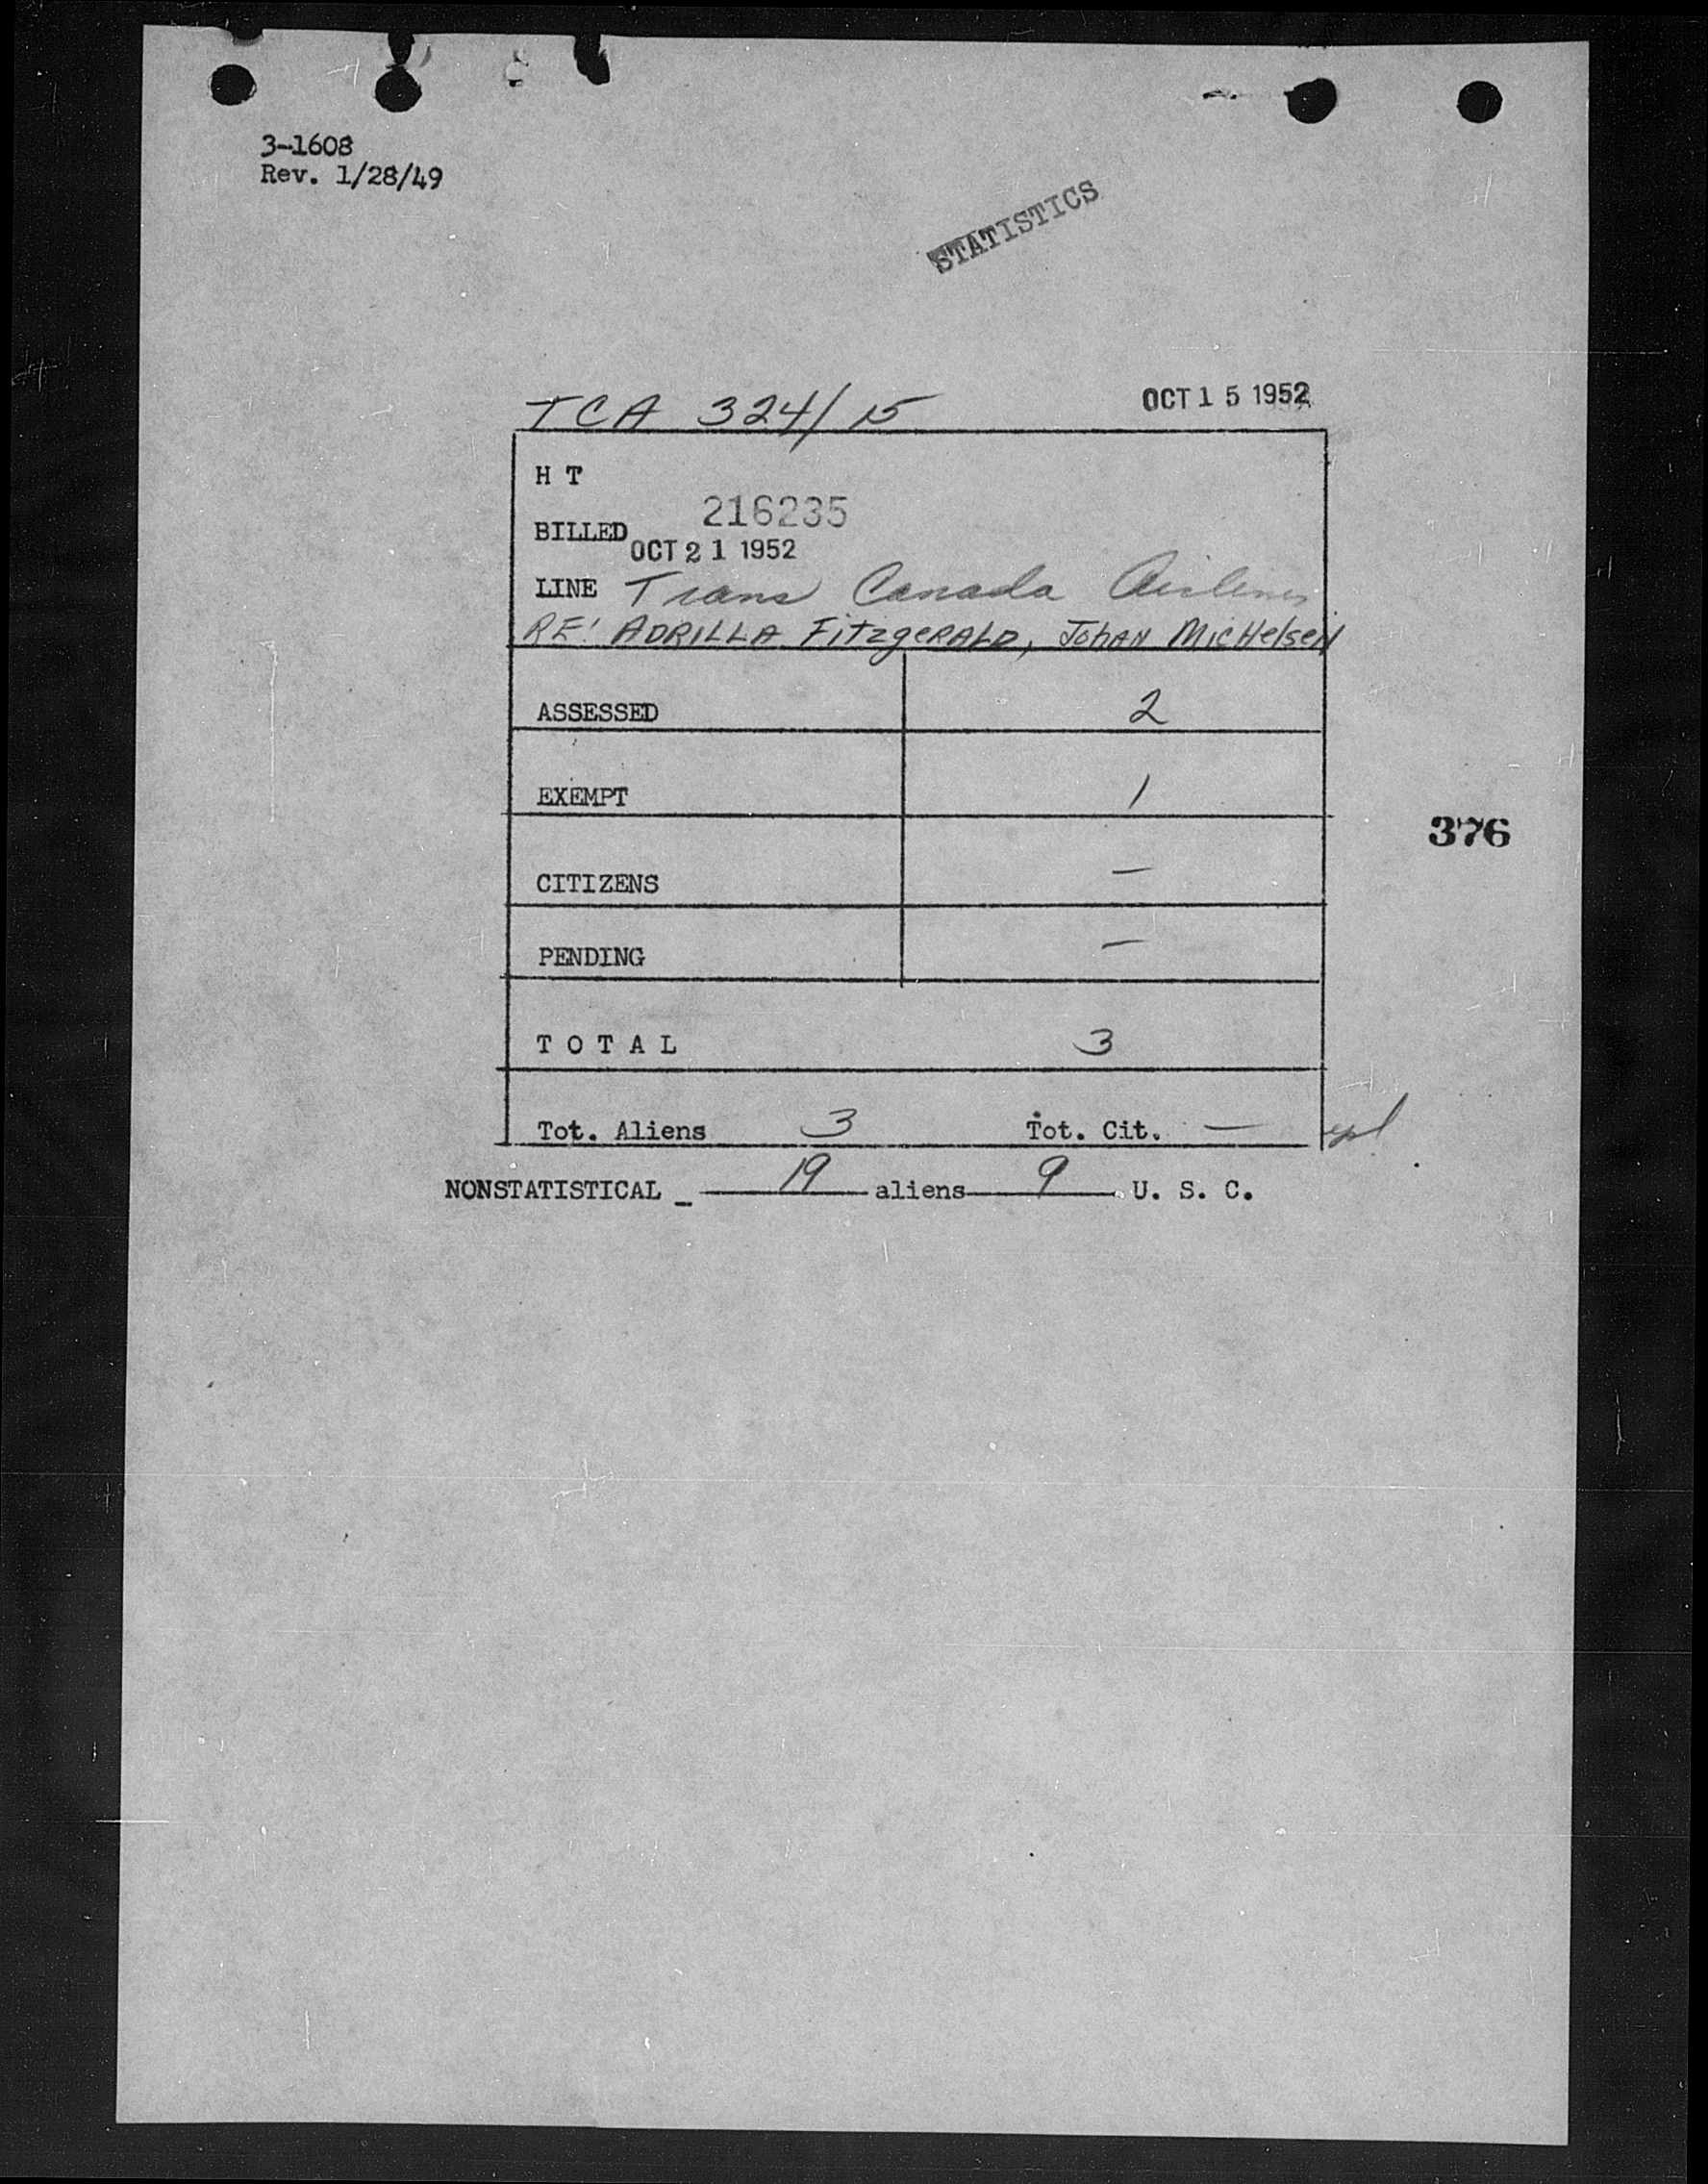 3-1608
Rev. 1/28/49
STATISTICS
TCA 324/15 OCT 15 1952
H T
216235
BILLED
OCT 21 1952
LINE Trans Canada Airlines
RE: ADRILLA FITZGERALD, JOHAN MICHELSEN
ASSESSED 2
EXEMPT 1
376
CITIZENS —
PENDING —
T O T A L 3
Tot. Aliens 3 Tot. Cit. —
NONSTATISTICAL _ 19 aliens 9 U. S. C.